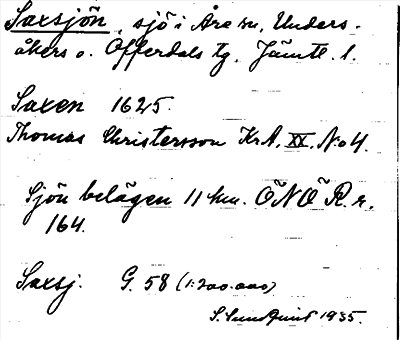 Saxsjön, sjö i Åre sn, Unders-
åkers o. Offerdals tg, Jämtl. l.
Saxen 1625.
Thomas Christersson KrA, XX, No 4.
Sjön belägen 11 km. ÖNÖ R.r.
164.
Saxsj. G. 58 (1:200.000)
S. Sundquist 1935.